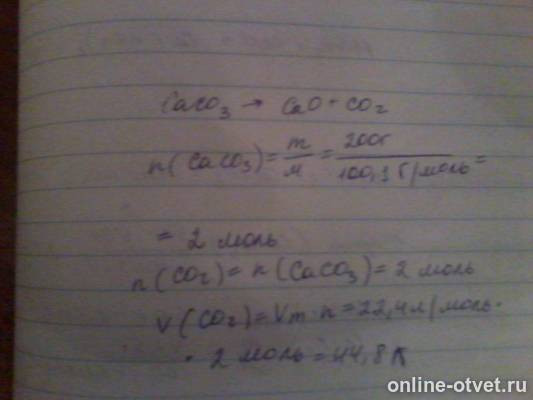 CaCO₃ → CaO + CO₂
n(CaCO₃) = m/M = 200г/100,1 г/моль =
= 2 моль
n(CO₂) = n(CaCO₃) = 2 моль
V(CO₂) = Vm · n = 22,4 л/моль ·
· 2 моль = 44,8 л
online-otvet.ru